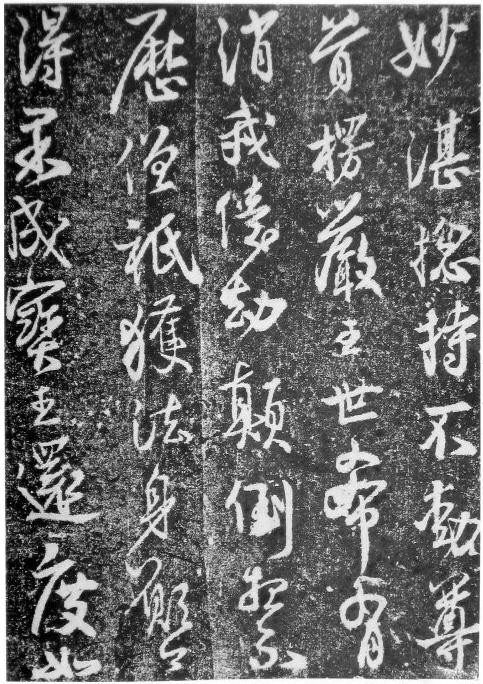 妙湛揔持不動尊
首楞嚴王世希有
消我億劫顛倒想不
歷僧祇獲法身願今
得果成寶王還度如